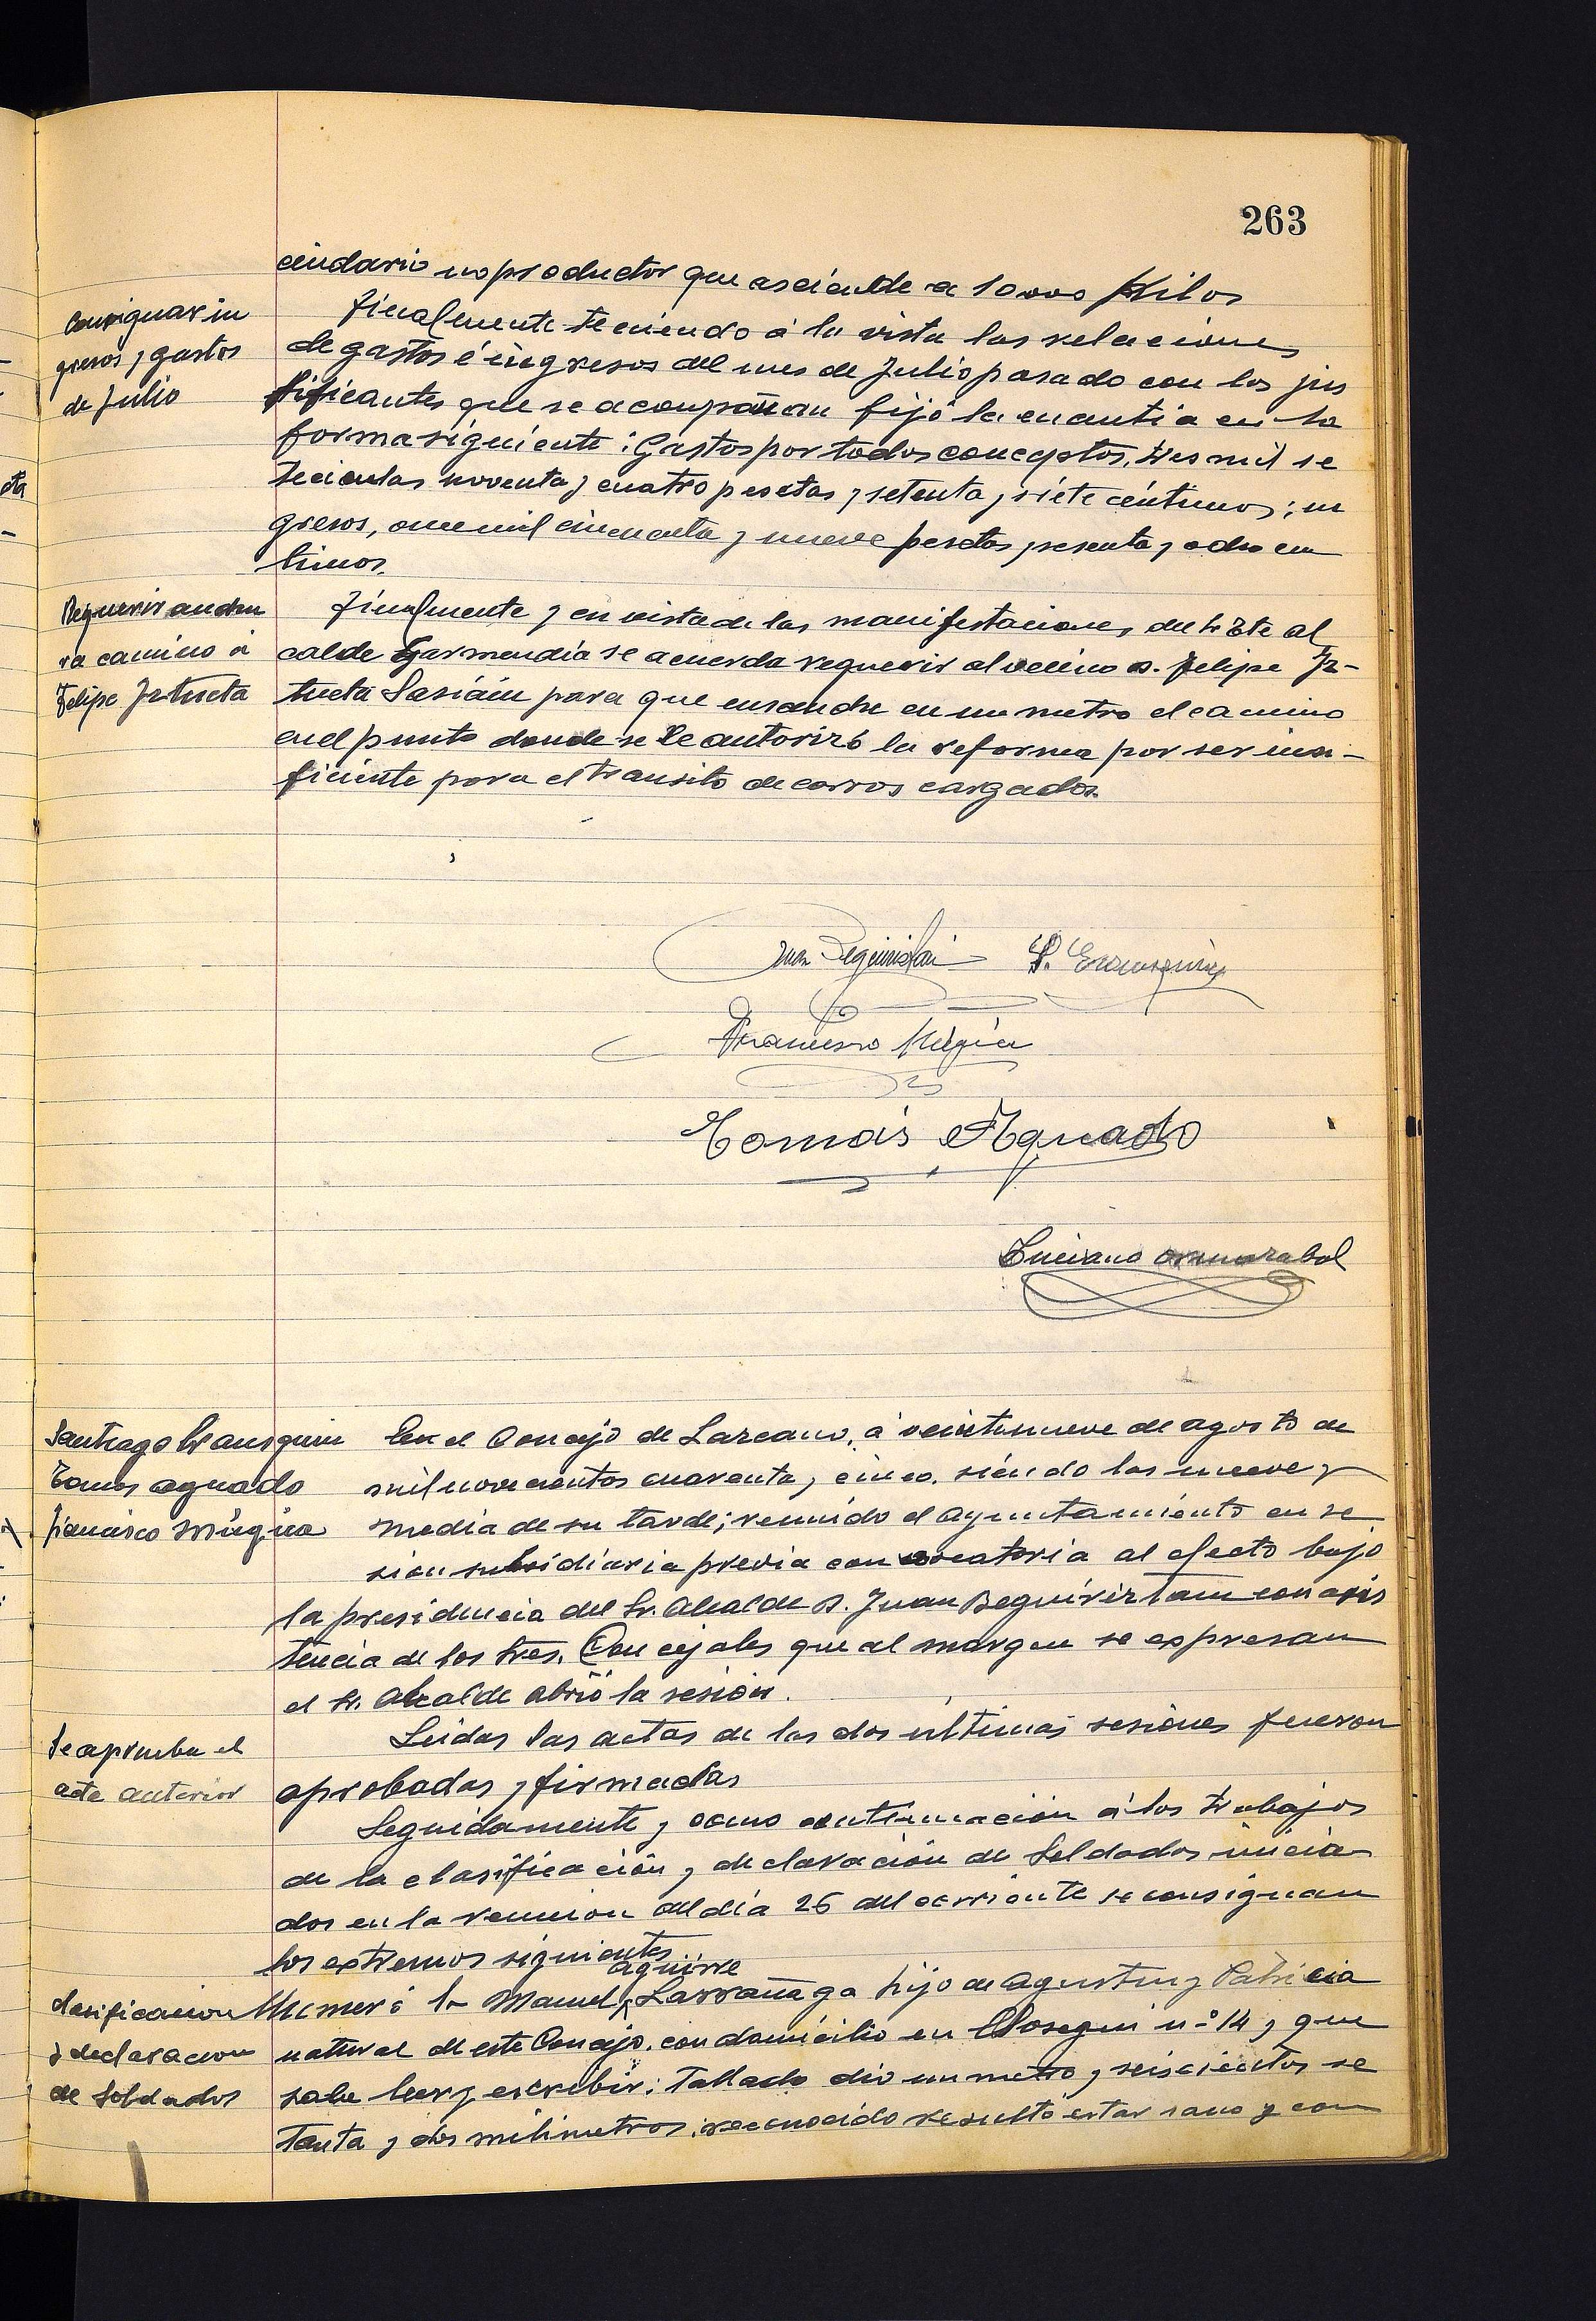 263
cindario no productor que asciende a 10000 Kilos
Consignar in
gresos y gastos
de Julio
Finalmente teniendo á la vista las relaciones
de gastos é ingresos del mes de Julio pasado con los jus
tificantes que se acompañan fijó la cuantia en la
forma siguiente: Gastos por todos conceptos, tres mil se
tecientas noventa y cuatro pesetas y setenta y siete céntimos; in
gresos, once mil cincuenta y nueve pesetas y sesenta y ocho cen
timos.
Requerir anchu
ra camino á
Felipe Irtueta
Finalmente y en vista de las manifestaciones del Sr Tte al
calde Garmendia se acuerda requerir al vecino D. Felipe Ir-
tueta Sasiain para que ensanche en un metro el camino
en el punto donde se le autorizó la reforma por ser insu-
ficiente para el transito de carros cargados.
Juan Beguiristain S. Erausquin
Francisco Mugica
Tomás Aguado
Luciano
Santiago Erausquin
Tomas aguado
Francisco Múgica
En el Concejo de Lazcano, á veintinueve de agosto de
mil novecientos cuarenta y cinco, siendo las nueve y
media de su tarde; reunido el ayuntamiento en se
sion subsidiaria previa convocatoria al efecto bajo
la presidencia del Sr. Alcalde D. Juan Beguiriztain con asis
tencia de los tres. Concejales que al margen se expresan
el Sr. Alcalde abrió la sesión.
Se aprueba el
acta anterior
Leidas las actas de las dos últimas sesiones fueron
aprobadas y firmadas
Seguidamente y como continuación á los trabajos
de la clasificación y declaración de Soldados inicia
dos en la reunion del día 26 del corriente se consignan
los extremos siguientes
clasificacion
y declaracion
de Soldados
aguirre
Numero 1- Manuel Larrañaga hijo de Agustin y Patricia
natural de este Concejo, con domicilio en Elosegui nº 14 y que
sabe leer y escribir; Tallado dió un metro y seiscientos se
tenta y dos milimetros; reconocido resultó estar sano y con